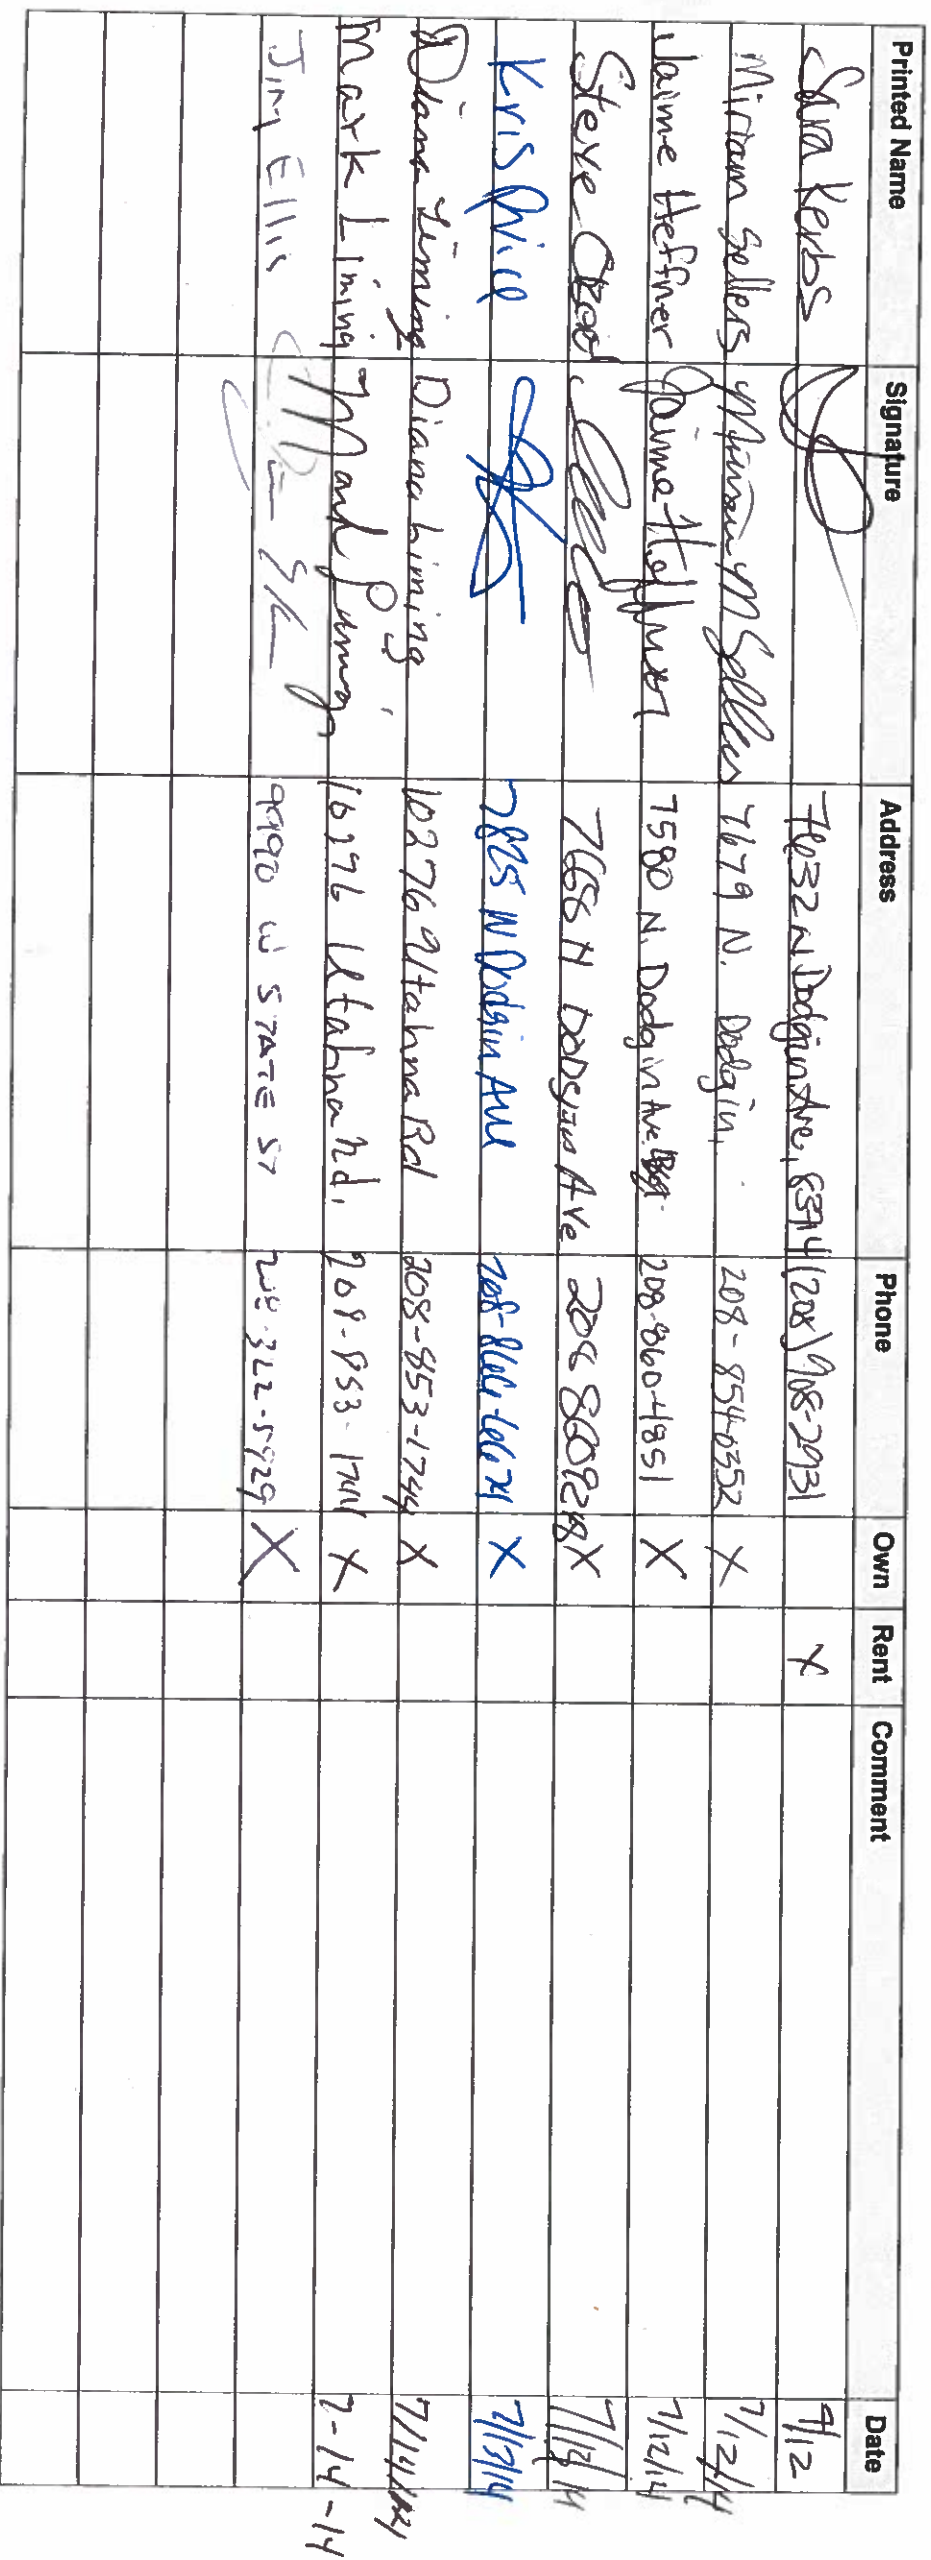 Printed Name Signature Address Phone Own Rent Comment Date
Sara Kerbs 7632 N Dodgin Ave, 83714 (208) 908-2931 X 7/12
Miriam Sellers Miriam M Sellers 7679 N. Dodgin, 208-854-0352 X 7/12/14
Jaime Heffner Jaime Heffner 7580 N. Dodgin Ave. 208-860-4851 X 7/12/14
Steve 7668 N Dodgin Ave 208 8609248 X
Kris 7825 N Dodgin Ave X 7/13/14
Diana Liming Diana Liming 10276 Utahna Rd 208-853-1744 X
Mark Liming Mark Liming 10276 Utahna Rd. 208-853-1744 X 7-14-14
Jim Ellis 9990 W STATE ST 208-322-5929 X